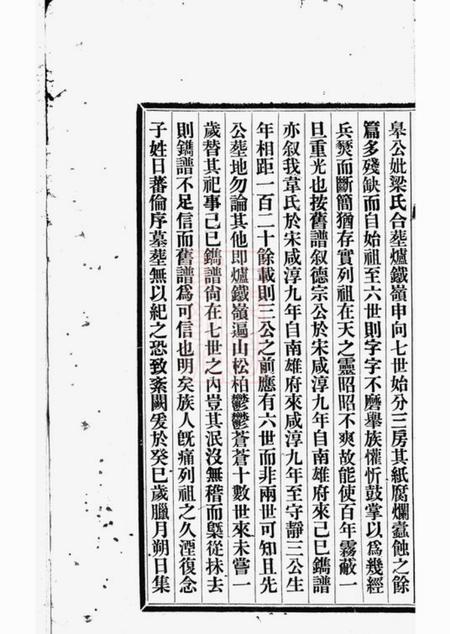 皋公妣梁氏合塟爐鐵嶺申向七世始分三房其紙腐爛蠧蝕之餘
篇多殘缺而自始祖至六世則字字不磨舉族懽忻鼓掌以爲幾經
兵燹而斷簡猶存實列祖在天之靈昭昭不爽故能使百年霧蔽一
旦重光也按舊譜叙德宗公於宋咸淳九年自南雄府來己巳鐫譜
亦叙我葦氏於宋咸淳九年自南雄府來咸淳九年至守靜三公生
年相距一百二十餘載則三公之前應有六世而非兩世可知且先
公塟地勿論其他即爐鐵嶺逼山松柏鬱鬱蒼蒼十數世來未嘗一
歲替其祀事己巳鐫譜尙在七世之內豈其泯沒無稽而槩從抹去
則鐫譜不足信而舊譜爲可信也明矣族人旣痛列祖之久湮復念
子姓日蕃倫序墓塟無以紀之恐致紊闕爰於癸巳歲臘月朔日集